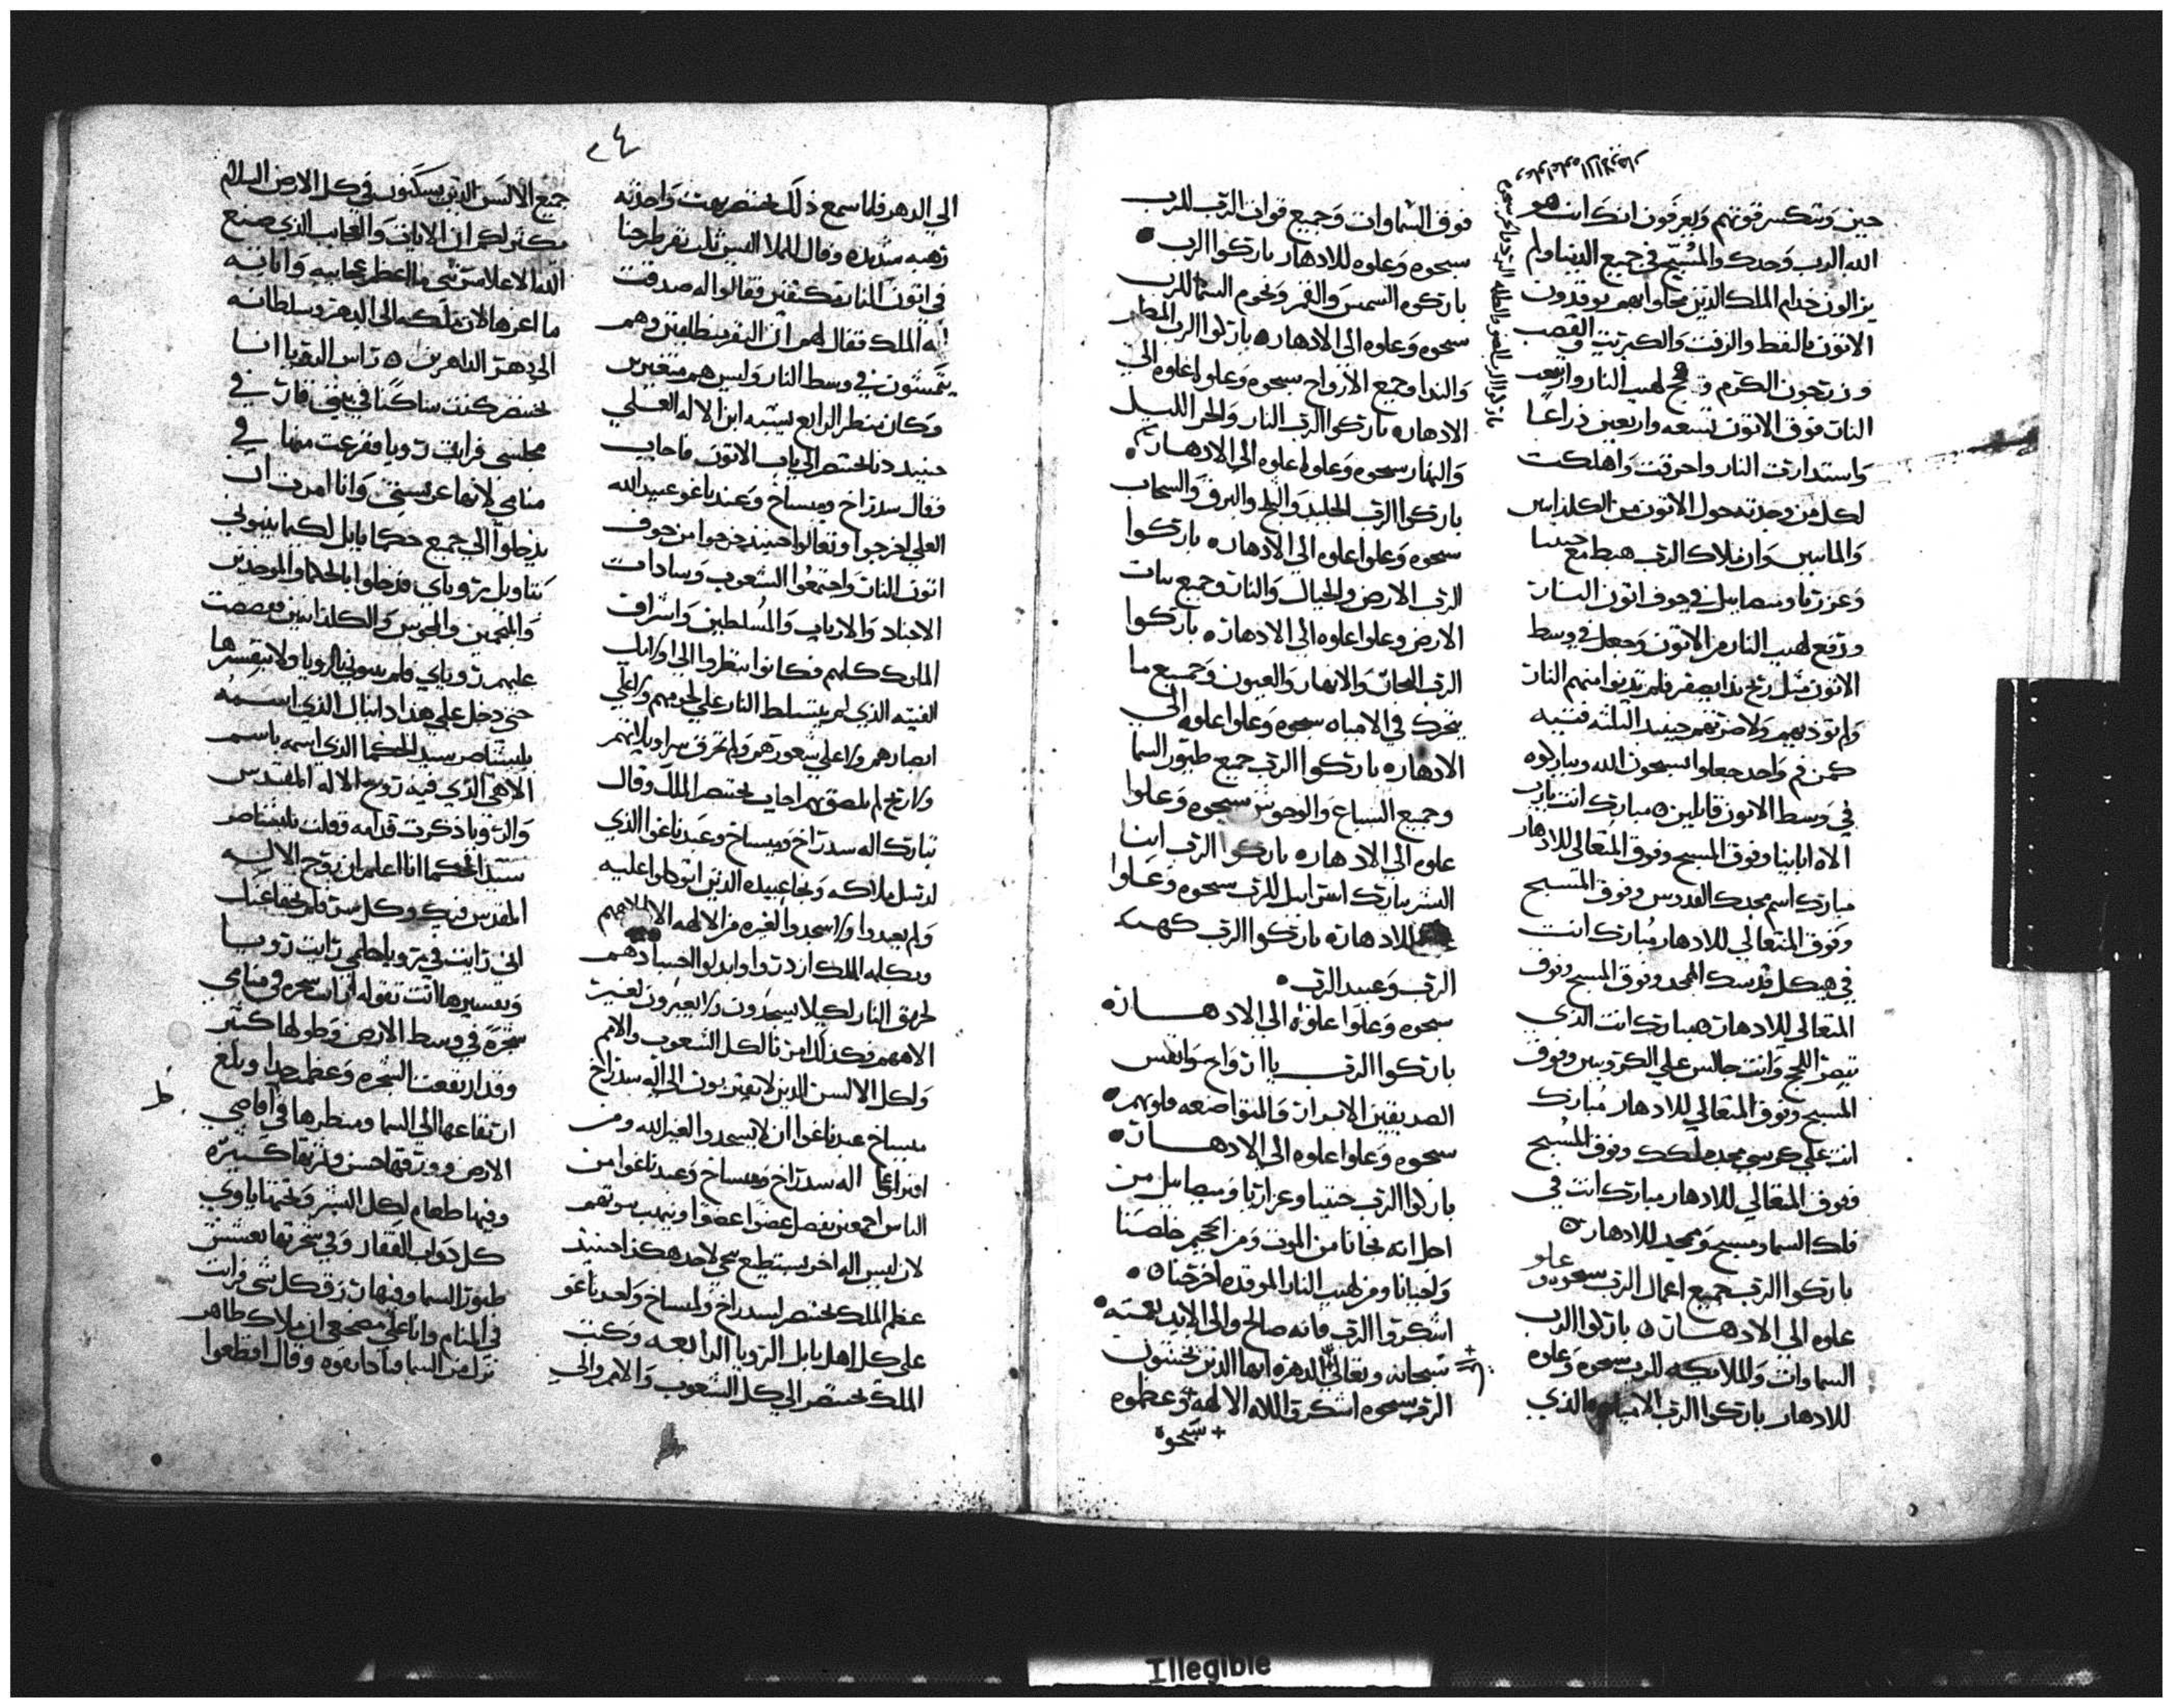 حين وتنكسر قوتهم ويعرفون انك انت هو
الله الرب وحدك والمسبح في جميع الدنيا ولم
يزالون خدام الملك الذين جعلوا بهم يوقدون
الاتون بالنفط والزفت والكبريت والقصب
وزرجون الكرم
لهيب النار وارتفعت
النار فوق الاتون تسعه واربعين ذراعا
واستدارت النار واحرقت واهلكت
لكل من وجدته حول الاتون من الكلدانيين
وان ملاك الرب هبط مع حننيا
وعزريا وميصاييل في جوف اتون النار
ودفع لهيب النار من الاتون وجعل في وسط
الاتون مثل ريح
فلم تدنوا منهم النار
ولم توذيهم ولا ضرتهم حينيد الثلثه فتيه
كمن فم واحد جعلوا يسبحون الله ويباركوه
في وسط الاتون قايلين مبارك انت يارب
الاه اباينا وفوق المسبح وفوق المتعالي للادهار
مبارك اسم مجدك القدوس وفوق المسبح
وفوق المتعالي للادهار مبارك انت
في هيكل قدسك الممجد وفوق المسبح وفوق
المتعالي للادهار مبارك انت الذي
تبصر اللجج وانت جالس علي الكروبين وفوق
المسبح وفوق المتعالي للادهار مبارك
انت علي كرسي مجد ملكك وفوق المسبح
وفوق المتعالي للادهار مبارك انت في
فلك السما ومسبح وممجد للادهار
باركوا الرب جميع اعمال الرب سبحوه و علو
علوه الي الادهار باركوا الرب
السماوات والملايكه للرب سبحوه وعلوه
للادهار باركوا الرب الامياه الذي
فوق السماوات وجميع قوات الرب للرب
سبحوه وعلوه للادهار باركوا الرب
باركوه الشمس والقمر ونجوم السما للرب
سبحوه وعلوه الي الادهار باركوا الرب المطر
والندا وجميع الارواح سبحوه وعلوا علوه الي
الادهار باركوا الرب النار والحر الليل
والنهار سبحوه وعلوا علوه الي الادهار
باركوا الرب الجليد والثلج والبرق والسحاب
سبحوه وعلوا علوه الي الادهار باركوا
الرب الارض والجبال والنار وجميع نبات
الارض وعلوا علوه الي الادهار باركوا
الرب البحار والانهار والعيون وجميع ما
يتحرك في الامياه سبحوه وعلوا علوه الي
الادهار باركوا الرب جميع طيور السما
وجميع السباع والوحوش سبحوه وعلوا
علوه الي الادهار باركوا الرب ابنا
البشر يبارك اسراييل للرب سبحوه وعلوا
للادهار باركوا الرب كهنه
الرب وعبيد الرب
سبحوه وعلوا علوه الي الادهار
باركوا الرب ياارواح وانفس
الصديقين الابرار والمتواضعه قلوبهم
سبحوه وعلوا علوه الي الادهار
باركوا الرب حننيا وعزاريا وميصاييل من
اجل انه نجانا من الموت ومن الجحيم خلصنا
ونجانا ومن لهيب النار الموقده اخرجنا
اشكروا الرب فانه صالح والي الابد نعمته
سبحانه وتعالي الدهر ايها الذين يخشون
الرب سبحوه اشكروا اللاه الالهه وعظموه
+ سبحوه
الي الدهر فلما سمع ذلك بختنصر بهت واخذته
رهبه شديده وقال للملا اليس ثلث نفر طرحنا
في اتون النار مكتفين فقالوا له صدقت
ايها الملك فقال لهم ان النفر منطلقين وهم
يتمشون في وسط النار وليس هم متغيرين
وكان منظر الرابع يشبه ابن الاله العلي
حينيد دنا بختنصر الي باب الاتون فاجاب
فقال سدراخ وميساخ وعبدناغو عبيد الله
العلي اخرجوا وتعالوا حينيد خرجوا من جوف
اتون النار واجتمعوا الشعوب وسادات
الاجناد والارباب والمسلطين واشراف
الملوك كلهم فكانوا ينظروا الي اوليك
الفتيه الذي لم يتسلط النار علي لحومهم ولا علي
ابصارهم ولا علي شعورهم ولم تحرق سراويلاتهم
ولا ريح لم يلصق بهم اجاب بختنصر الملك وقال
تبارك اله سدراخ وميساخ وعبدناغوا الذي
ارسل ملاكه ونجا عبيده الذين اتوكلوا عليه
ولم يعبدوا ولا اسجدوا لغيره من الالهه الا الاههم
وبكلمه الملك ازدروا وابدلوا اجسادهم
لحريق النار لكيلا يسجدون ولا يعبدون لغير
الاههم وكذلك امرنا لكل الشعوب والامم
ولكل الالسن الدين لا يفترون الي اله سدراخ
ميساخ عبدناغوا ان لا يسجدوا لغير الله ومن
افترا علي اله سدراخ وميساخ وعبدناغوا من
الناس اجمعين يفصل عضوا عضوا وينهب بيوتهم
لان ليس اله اخر يستطيع ينجي لاحد هكذا حينيد
عظم الملك بختنصر لسدراخ ولميساخ ولعبدناغو
علي كل اهل بابل الرويا الرابعه وكتب
الملك بختنصر الي كل الشعوب والامم والي
جميع الالسن الذين يسكنون في كل الارض السلام
يكثر لكم ان الايات والعجايب الذي صنع
الله الاعلا معي ما اعظم عجايبه واياته
ما اعزها لان ملكه الي الدهر وسلطانه
الي دهر الداهرين راس الرويا انا
بختنصر كنت ساكنا في بيتي قار في
مجلسي فرايت رويا ففزعت منها في
منامي لانها
وانا امرت ان
يدخلوا الي جميع حكما بابل لكيما ينبوني
بتاويل روياي فدخلوا
والمنجمين والمجوس والكلدانيين فقصصت
عليهم روياي فلم ينبوني الرويا ولا بتفسيرها
حتي دخل علي هذا دانيال الذي اسمه
بليشاصر سيد الحكما الذي اسمه باسم
الاهي الذي فيه روح الاله المقدس
والرويا ذكرت قدامه وقلت بليشاصر
سيد الحكما انا اعلم ان روح الاله
المقدس فيك وكل سر فلم يخفا عنك
اني رايت في رويا حلمي رايت رويا
وتفسيرها انت تقوله اني رايت شجره في منامي
شجره في وسط الارض وطولها كثير
وقد ارتفعت الشجره وعظمت جدا وبلغ
ارتفاعها الي السما ومنظرها في اقاصي
الارض وورقها حسن وثمرتها كثيره
وفيها طعام لكل البشر وتحتها ياوي
كل دواب القفار وفي شجرتها يعشش
طيور السما وفيها رزق كل شي فرايت
في المنام وانا علي مضجعي ان ملاك طاهر
نزل من السما فاجا بقوه وقال اقطعوا
Illegible